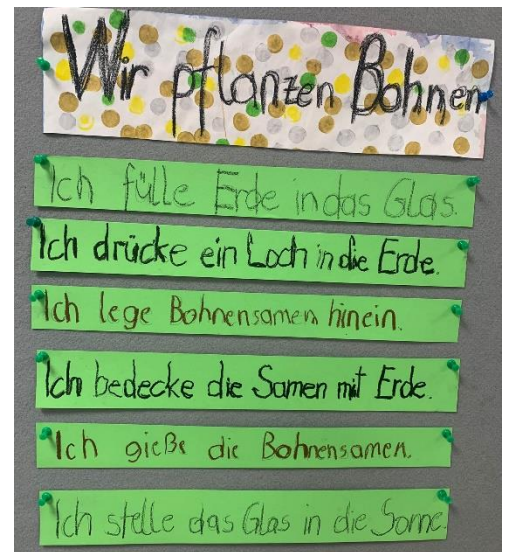 Wir pflanzen Bohnen
Ich fülle Erde in das Glas.
Ich drücke ein Loch in die Erde.
Ich lege Bohnensamen hinein.
Ich bedecke die Samen mit Erde.
Ich gieße die Bohnensamen.
Ich stelle das Glas in die Sonne.